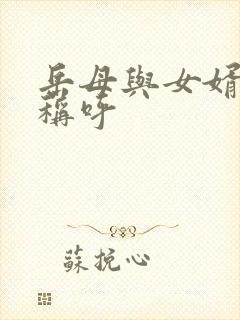 岳母與女婿
稱呼
蘇挽心